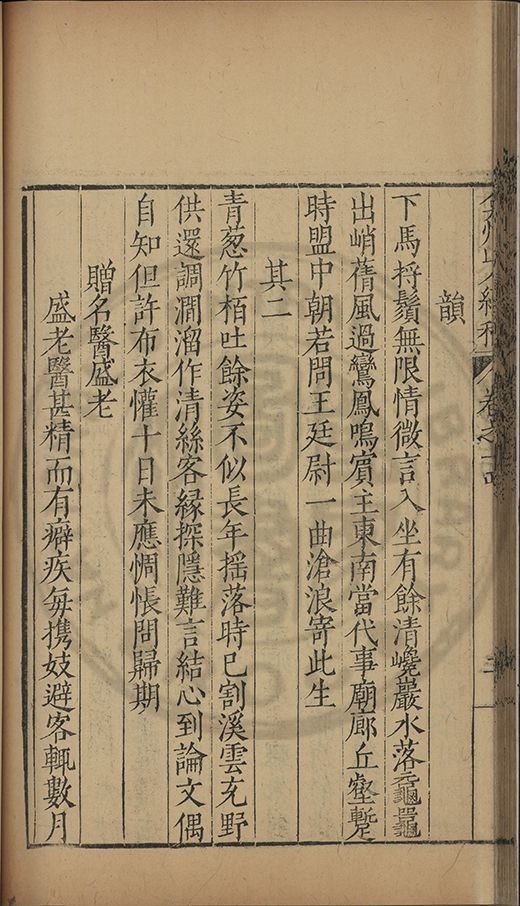 弇州山人續稿 卷之
韻
下馬捋鬚無限情微言入坐有餘清巉巖水落黿鼉
出峭蒨風過鸞鳳鳴賓主東南當代事廟廊丘壑蹔
時盟中朝若問王廷尉一曲滄浪寄此生
其二
青葱竹栢吐餘姿不似長年揺落時已割溪雲充野
供還調澗溜作清絲客縁探隱難言結心到論文偶
自知但許布衣懽十日未應惆悵問歸期
贈名醫盛老
盛老醫甚精而有癖疾每携妓避客輒數月